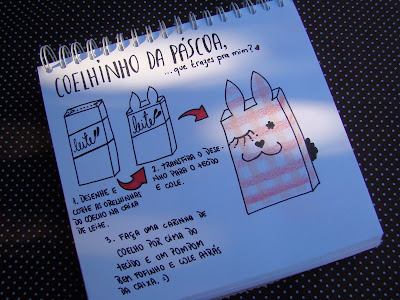 COELHINHO DA PÁSCOA,
...que trazes pra mim?
leite
leite
1. DESENHE E
CORTE AS ORELHINHAS
DO COELHO NA CAIXA
DE LEITE.
2. TRANSFIRA O DESE-
NHO PARA O TECIDO
E COLE.
3. FAÇA UMA CARINHA DE
COELHO POR CIMA DO
TECIDO E UM POMPOM
BEM FOFINHO E COLE ATRÁS
DA CAIXA. :)